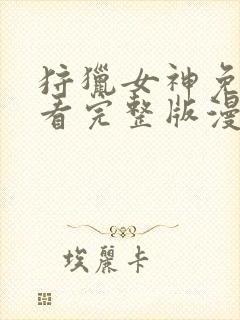 狩獵女神免
看完整版漫
埃麗卡